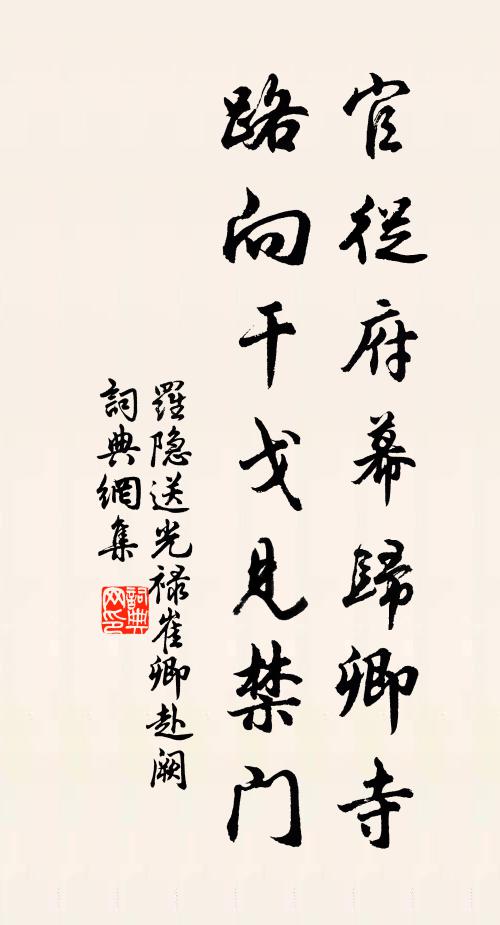 官從府幕歸卿寺
路向干戈見禁門
羅隐送光禄崔卿赴阙
詞典網集
詞典网印